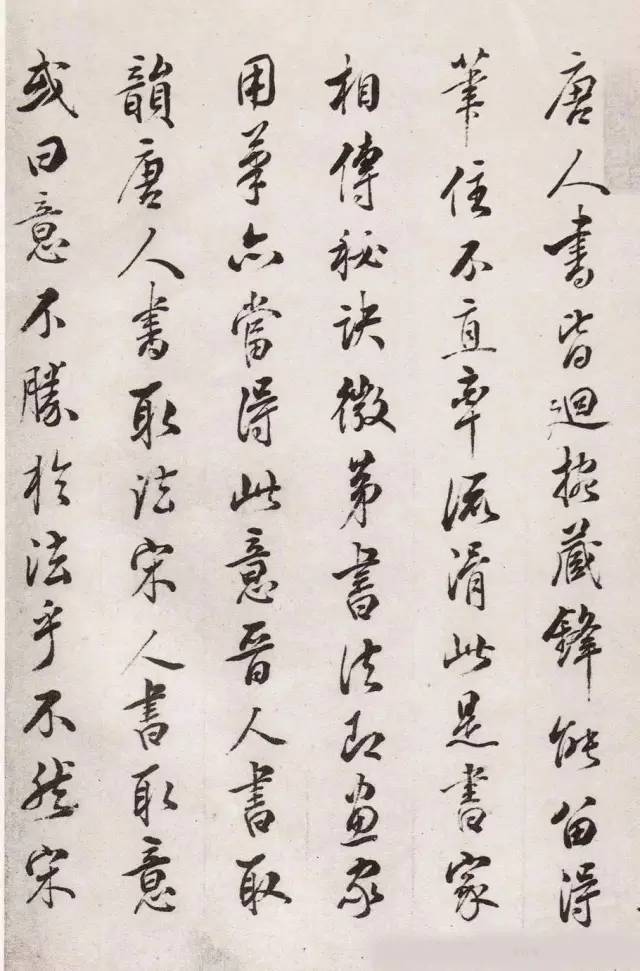 唐人書皆迴腕藏鋒能留得
筆住不直率流滑此是書家
相傳秘訣微第書法即畫家
用筆亦當得此意晉人書取
韻唐人書取法宋人書取意
或曰意不勝於法乎不然宋